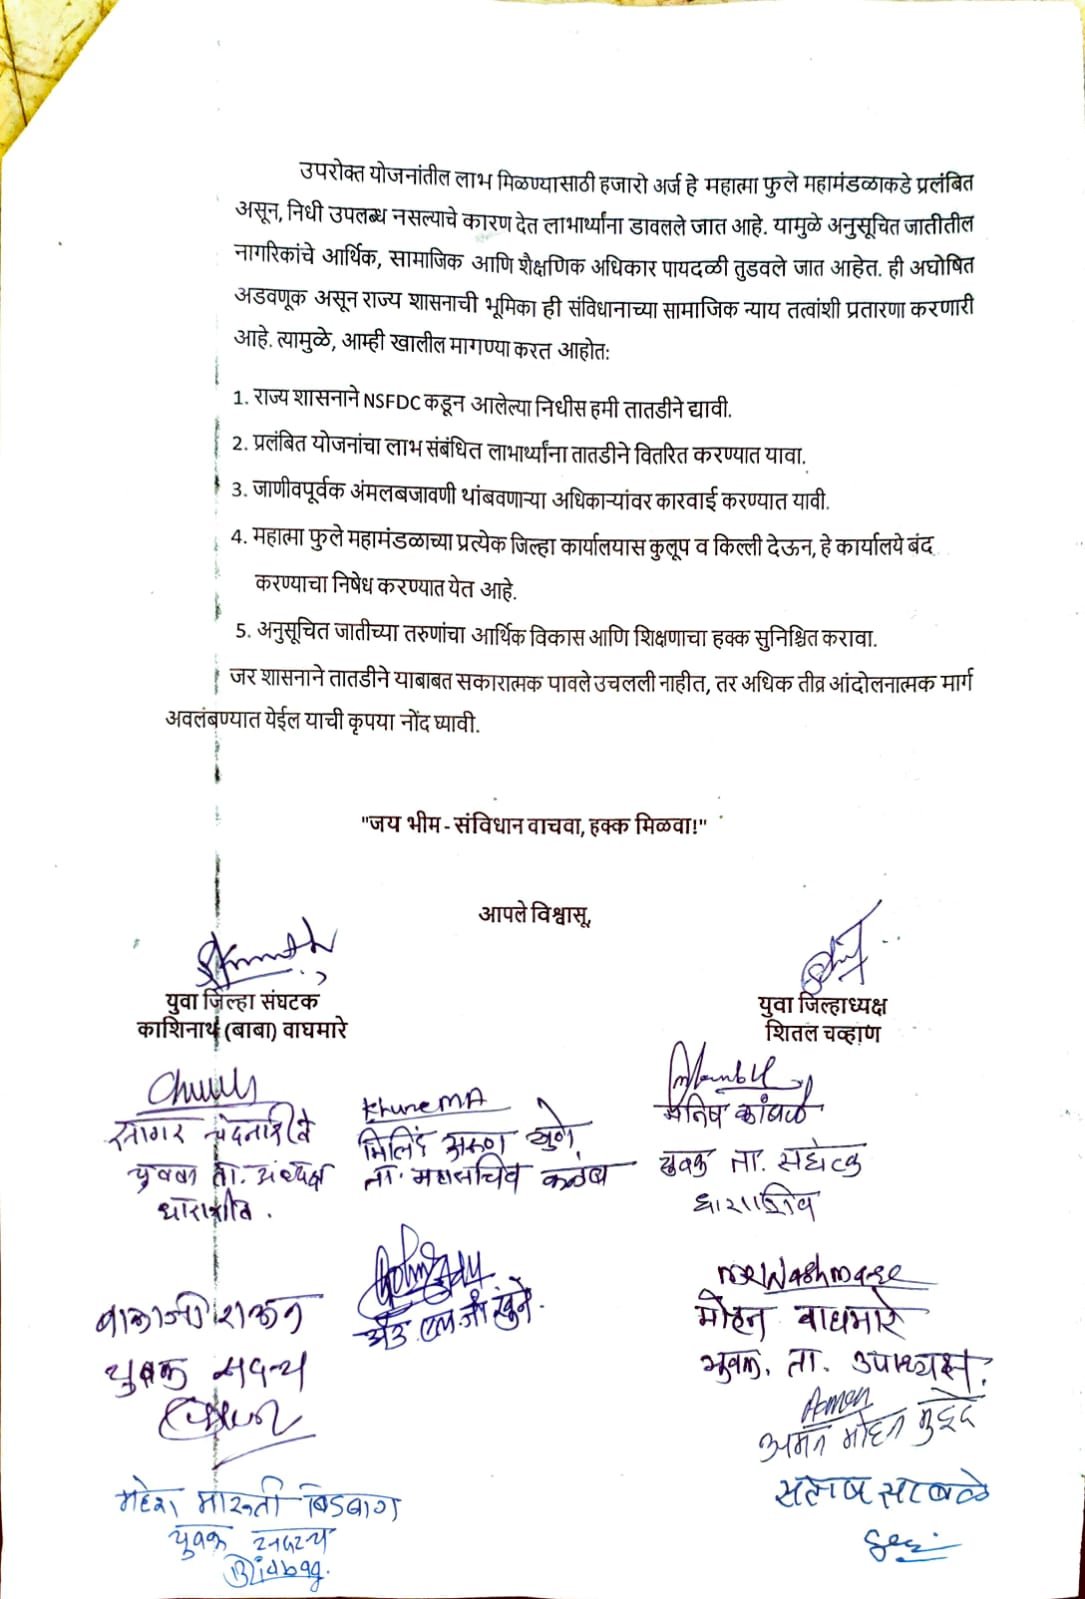 उपरोक्त योजनांतील लाभ मिळण्यासाठी हजारो अर्ज हे महात्मा फुले महामंडळाकडे प्रलंबित
असून, निधी उपलब्ध नसल्याचे कारण देत लाभार्थ्यांना डावलले जात आहे. यामुळे अनुसूचित जातीतील
नागरिकांचे आर्थिक, सामाजिक आणि शैक्षणिक अधिकार पायदळी तुडवले जात आहेत. ही अघोषित
अडवणूक असून राज्य शासनाची भूमिका ही संविधानाच्या सामाजिक न्याय तत्वांशी प्रतारणा करणारी
आहे. त्यामुळे, आम्ही खालील मागण्या करत आहोत:
1. राज्य शासनाने NSFDC कडून आलेल्या निधीस हमी तातडीने द्यावी.
2. प्रलंबित योजनांचा लाभ संबंधित लाभार्थ्यांना तातडीने वितरित करण्यात यावा.
3. जाणीवपूर्वक अंमलबजावणी थांबवणाऱ्या अधिकाऱ्यांवर कारवाई करण्यात यावी.
4. महात्मा फुले महामंडळाच्या प्रत्येक जिल्हा कार्यालयास कुलूप व किल्ली देऊन, हे कार्यालये बंद
करण्याचा निषेध करण्यात येत आहे.
5. अनुसूचित जातीच्या तरुणांचा आर्थिक विकास आणि शिक्षणाचा हक्क सुनिश्चित करावा.
जर शासनाने तातडीने याबाबत सकारात्मक पावले उचलली नाहीत, तर अधिक तीव्र आंदोलनात्मक मार्ग
अवलंबण्यात येईल याची कृपया नोंद घ्यावी.
"जय भीम - संविधान वाचवा, हक्क मिळवा!"
आपले विश्वासू,
युवा जिल्हा संघटक
काशिनाथ (बाबा) वाघमारे
युवा जिल्हाध्यक्ष
शितल चव्हाण
सागर
युवक ता. अध्यक्ष
धाराशीव.
Khune MA
मिलिंद अरुण खुणे
ता. महासचिव कळंब
मनिष कांबळे
युवक ता. संघटक
धाराशिव
बालाजी
युवक सदस्य
अॅड एल.जी खुने.
मोहन वाघमारे
युवक. ता. उपाध्यक्ष.
Aman
अमन मोहन
महेश मारुती बिडबाग
युवक सदस्य
Bidbag.
साबळे